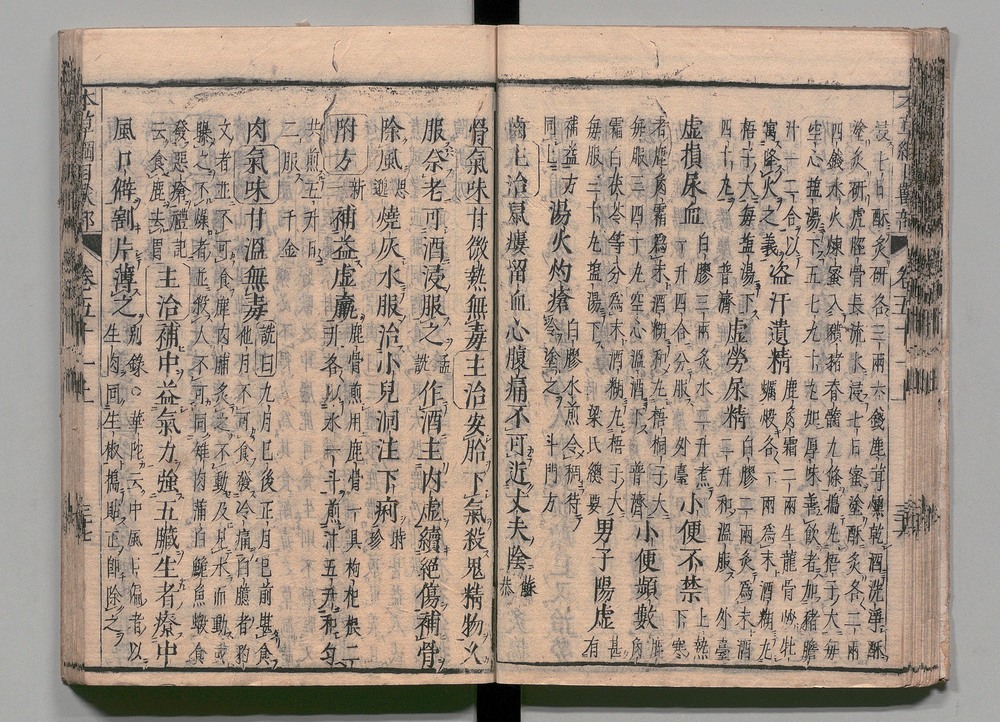 塗炙研虎脛骨長流水浸七日蜜塗酥炙各二兩
空心鹽湯下五七九十丸如厚味善飲者加猪膽
汁一二合以
寓降火之義盜汗遺精鹿角霜二兩生龍骨炒牡
梧子大每鹽湯下
四十丸普濟虛勞尿精白膠二兩炙爲末酒
二升和溫服外臺
虛損尿血白膠三兩炙水二升煮
一升四合分服外臺小便不禁上熱
下寒
者鹿角霜爲末酒糊丸梧桐子大
每服三四十丸空心溫酒下普濟小便頻數
霜白茯苓等分爲末酒糊丸梧子大
每服三十丸鹽湯下梁氏總要男子陽虛甚
有
補益方
同上湯火灼瘡白膠水煎令稠待
冷塗之斗門方
齒主治鼠瘻留血心腹痛不可近丈夫陰蘇
恭
骨氣味甘微熱無毒主治安胎下氣殺鬼精物久
服奈老可酒浸服之孟
詵作酒主內虛續絕傷補骨
除風思
邈燒灰水服治小兒洞注下痢時
珍
附方新
補益虛羸鹿骨煎用鹿骨一具枸杞根二
升各以水一斗煎汁五升和勻
共煎五升日
二服千金
肉氣味甘溫無毒詵曰九月已後正月已前堪食
他月不可食發冷痛白臆者豹
文者並不可食鹿肉脯炙之不動及見水而動或
曝之不燥者並殺人不可同雉肉蒲白鮠魚蝦食
發惡瘡禮記
云食鹿去胃主治補中益氣力強五臟生者療中
風口僻割片薄之別錄○華陀云中風口偏者以
生肉同生椒擣貼正即除之